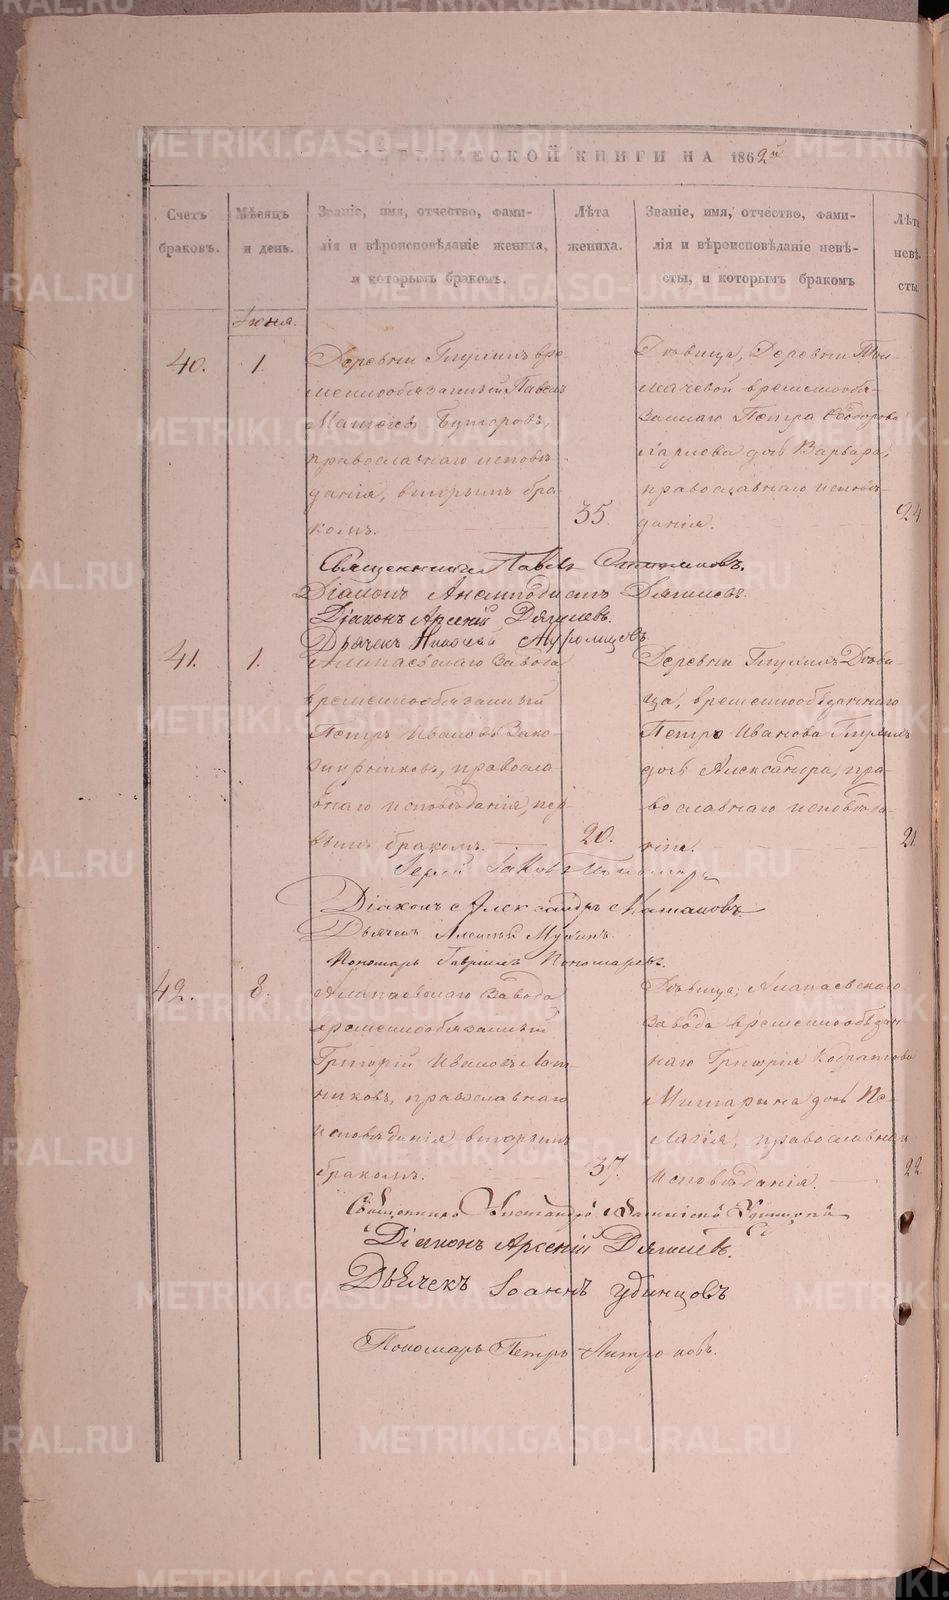 МЕТРИЧЕСКОЙ КНИГИ НА 1862й
Счетъ браковъ.
Мѣсяцъ и день.
Званіе, имя, отчество, фами-
лія и вѣроисповѣданіе жениха,
и которымъ бракомъ.
Лѣта жениха.
Званіе, имя, отчество, фами-
лія и вѣроисповѣданіе невѣ-
сты, и которымъ бракомъ
Лѣта невѣ-
сты.
Іюня.
40.
1.
Деревни Глухихъ вре
меннообязанный Павелъ
Матѳеевъ Буторовъ,
православнаго исповѣ-
данія, вторымъ бра-
комъ.
35.
Дѣвица, Деревни Тол-
мачевой временнообя-
заннаго Петра Ѳеодорова
Карлова дочь Варвара,
православнаго исповѣ-
данія.
24
Священникъ Павелъ
Діаконъ Анемподистъ Дягилевъ.
Діаконъ Арсеній Дягилевъ.
Дьячекъ Николай Муромцовъ
41.
1.
Алапаевскаго Завода
временнообязанный
Петръ Ивановъ Зако-
журниковъ, правосла-
внаго исповѣданія, пер
вымъ бракомъ.
20.
Деревни Глухихъ Дѣви-
ца, временнообязаннаго
Петра Иванова Глухихъ
дочь Александра, пра-
вославнаго исповѣда-
нія.
21.
Іерей Іаковъ
Діаконъ Александръ
Дьячекъ Алексѣй Мухинъ.
Пономарь Гавріилъ Пономаревъ.
42.
8.
Алапаевскаго Завода
временнообязанный
Григорій Ивановъ Лат-
никовъ, православнаго
исповѣданія вторымъ
бракомъ.
37.
Дѣвица, Алапаевскаго
Завода временнообязан-
наго Григорія Кодратова
Митарина дочь Пе-
лагія, православнаго
исповѣданія.
22.
Священникъ
Діаконъ Арсеній Дягилевъ.
Дьячекъ Іоаннъ Удинцовъ
Пономарь Петръ Антроповъ.
METRIKI.GASO-URAL.RU